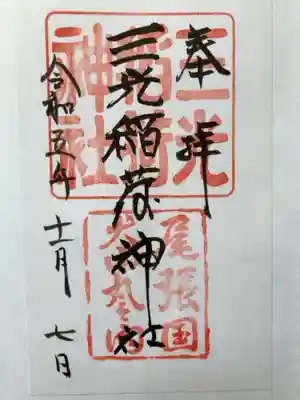 奉拝
三光稲荷神社
令和五年 十一月 七日
三光
稲荷
神社
尾張国